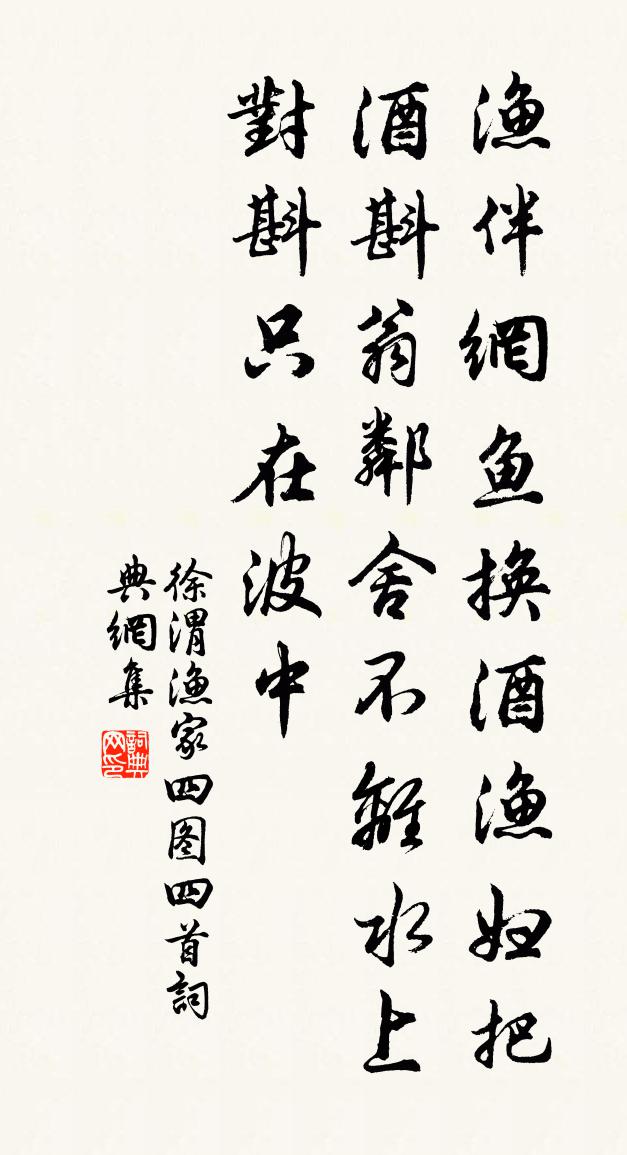 漁伴網魚換酒漁婦把
酒斟翁鄰舍不離水上
對斟只在波中
徐渭漁家四图四首詞
典網集
詞典
网印